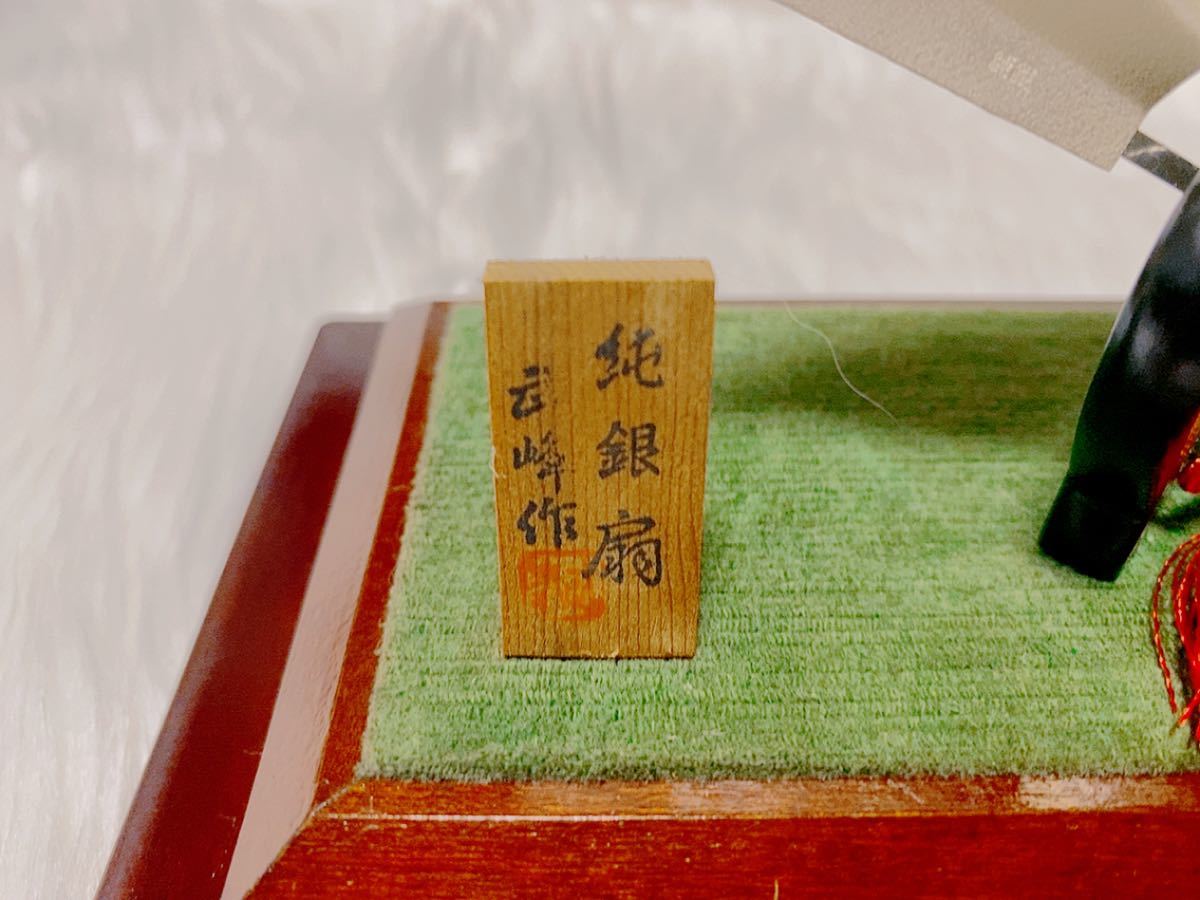 純銀扇
武峰作